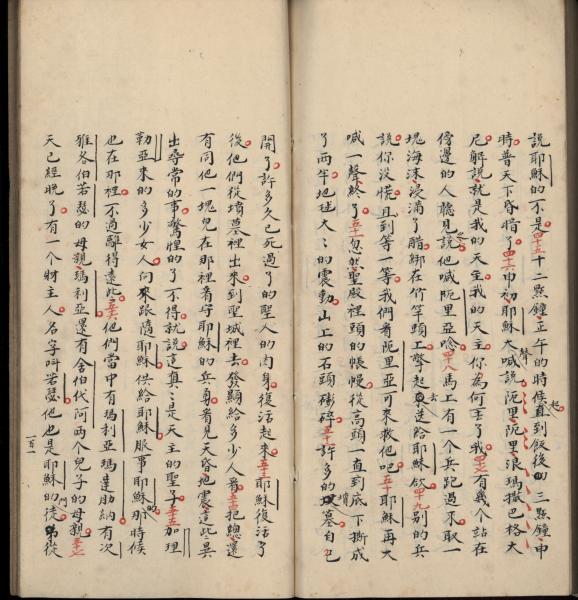 說耶穌的不是四十五十二點鐘正午的時候起直到飯後三點鐘申
時普天下昏暗了四十六申初耶穌大聲喊說阨里阨里浪瑪撒巴格大
尼解說就是我的天主我的天主你為何丟了我四十七有幾个站在
傍邊的人聽見說他喊阨里亞唸四十八馬上有一个兵跑過來取一
塊海沫浸滿了醋綁在竹竿頭上擎起去送給耶穌飲四十九別的兵
說你沒慌且到等一等我們看阨里亞可來救他吧五十耶穌再大
喊一聲終了五十一忽然聖殿裡頭的帳幔從高頭一直到底下撕成
了兩半地毬大〻的震動山上的石頭磞碎五十二許多的墳墓自己
開了許多久已死過了的聖人的肉身復活起來五十三耶穌復活了
後他們從墳墓裡出來到聖城裡去發顯給多少人看五十四把總還
有同他一塊兒在那裡看守耶穌的兵看見天昏地震這些異
出尋常的事驚惶的了不得就說這真〻是天主的聖子五十五加理
勒亞來的多少女人向來跟隨耶穌供給耶穌服事耶穌的那時候
也在那裡不過離得遠些五十六他們當中有瑪利亞瑪達肋納有次
雅各伯若瑟的母親瑪利亞還有舍伯代阿兩个兒子的母親五十七
天已經晚了有一个財主人名字叫若瑟他也是耶穌的門徒從